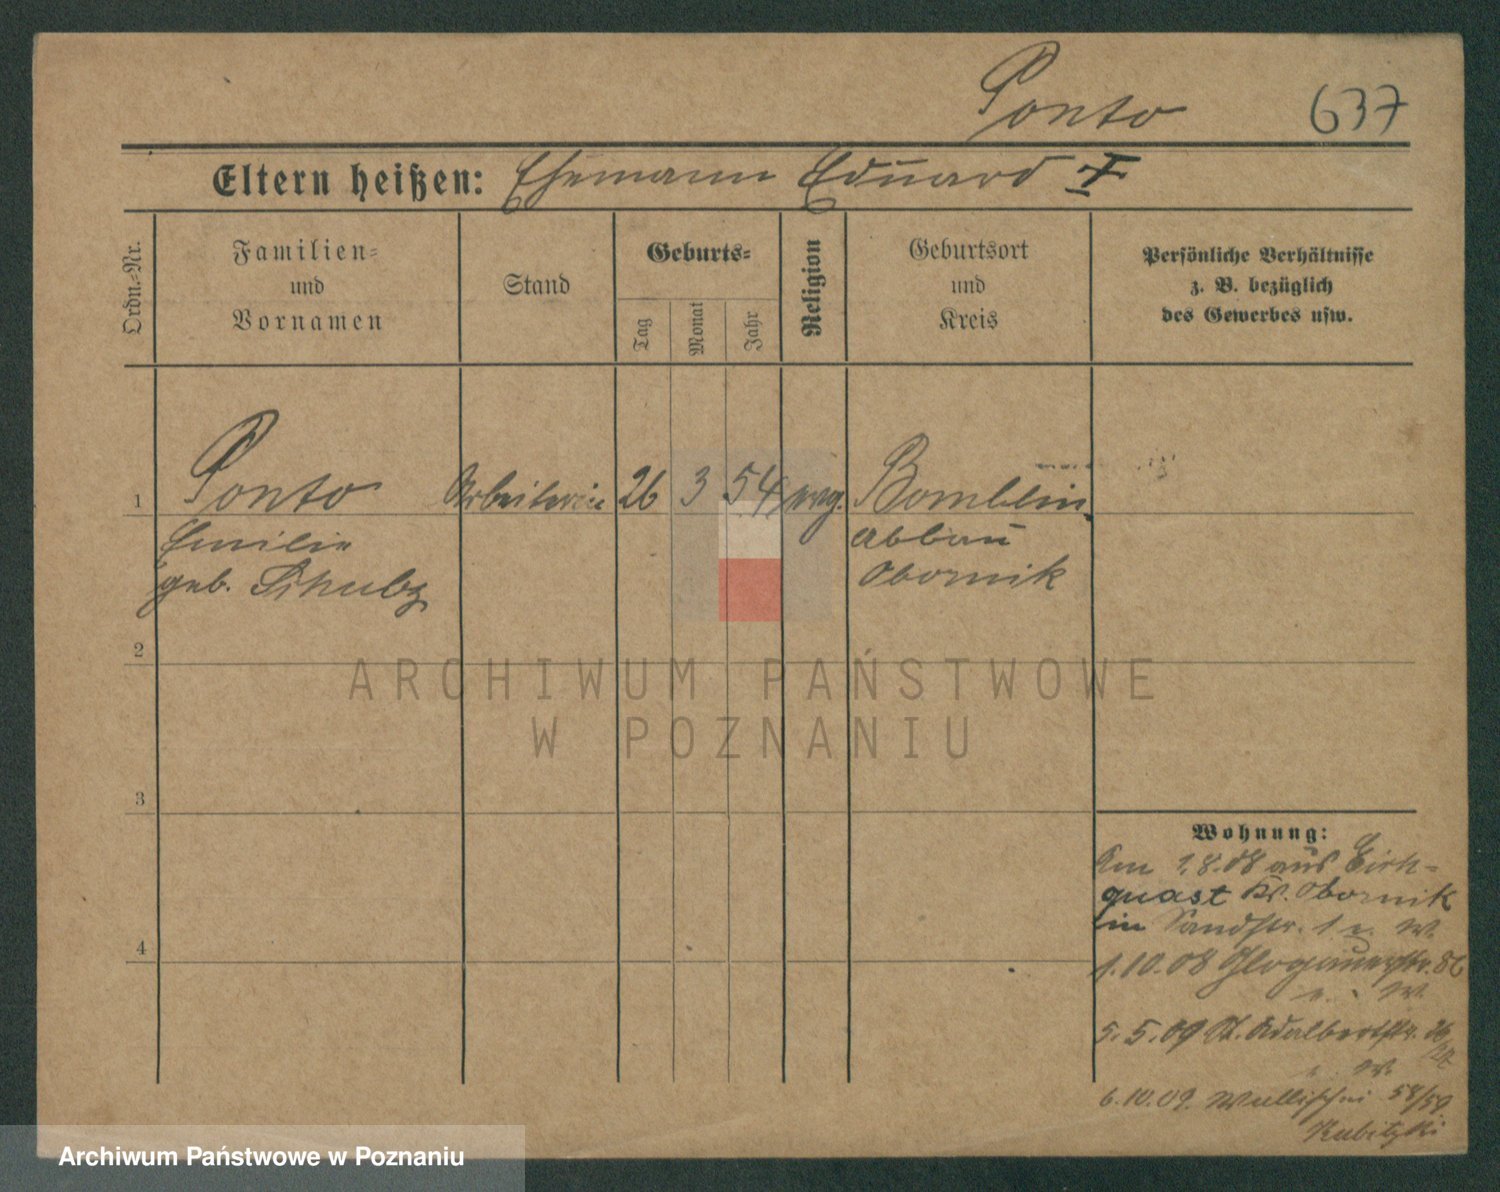 Ponto 637
Eltern heißen: Ehemann Eduard †
Ordn.-Nr.
Familien-
und
Vornamen
Stand
Geburts-
Tag
Monat
Jahr
Religion
Geburtsort
und
Kreis
Persönliche Verhältnisse
z. B. bezüglich
des Gewerbes usw.
1 Ponto Arbeiterin 26 3 54 evg. Bomblin
Emilie Abbau
geb. Schulz Obornik
2
ARCHIWUM PAŃSTWOWE
W POZNANIU
3
Wohnung:
Am 1.8.08 aus Eich-
quast Kr. Obornik
in Sandstr. 1 e. W.
4
1.10.08 Glogauerstr. 86
e. W.
5.5.09 St. Adalbertstr. 26
/27
e. W.
6.10.09. Wallischei 58/59
Kubitzki
Archiwum Państwowe w Poznaniu